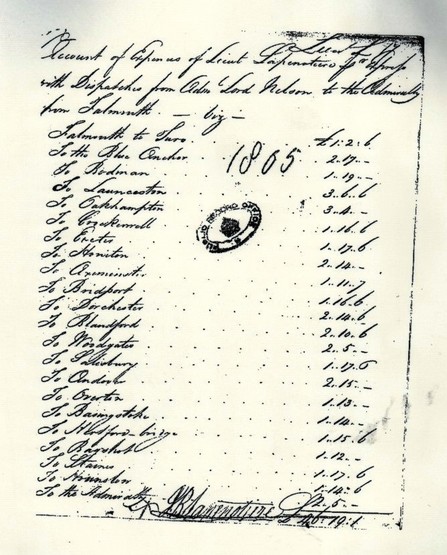 Account of Expences of Lieut Lapenotiere
with Dispatches from Adm Lord Nelson to the Admiralty
from Falmouth — viz —
Falmouth to Truro . . . £1:2:6
To the Blue Anchor . . . 2.17.-
1805
To Bodman . . . 1.19.-
To Launceston . . . 3.6.6
To Oakhampton . . . 3.4.-
To Crockernwell . . . 1.16.6
PUBLIC RECORD OFFICE
To Exeter . . . 1.17.6
To Honiton . . . 2.14.-
To Axminster . . . 1.11.7
To Bridport . . . 1.16.6
To Dorchester . . . 2.14.6
To Blandford . . . 2.10.6
To Woodyates . . . 2.5.-
To Salisbury . . . 1.17.6
To Andover . . . 2.15.-
To Overton . . . 1.13.-
To Basingstoke . . . 1.14.-
To Hertford-bridge . . . 1.15.6
To Bagshot . . . 1.12.-
To Staines . . . 1.17.6
To Hounslow . . . 1.14.6
To the Admiralty . . . 2.5.-
Lapenotiere £46.19.1